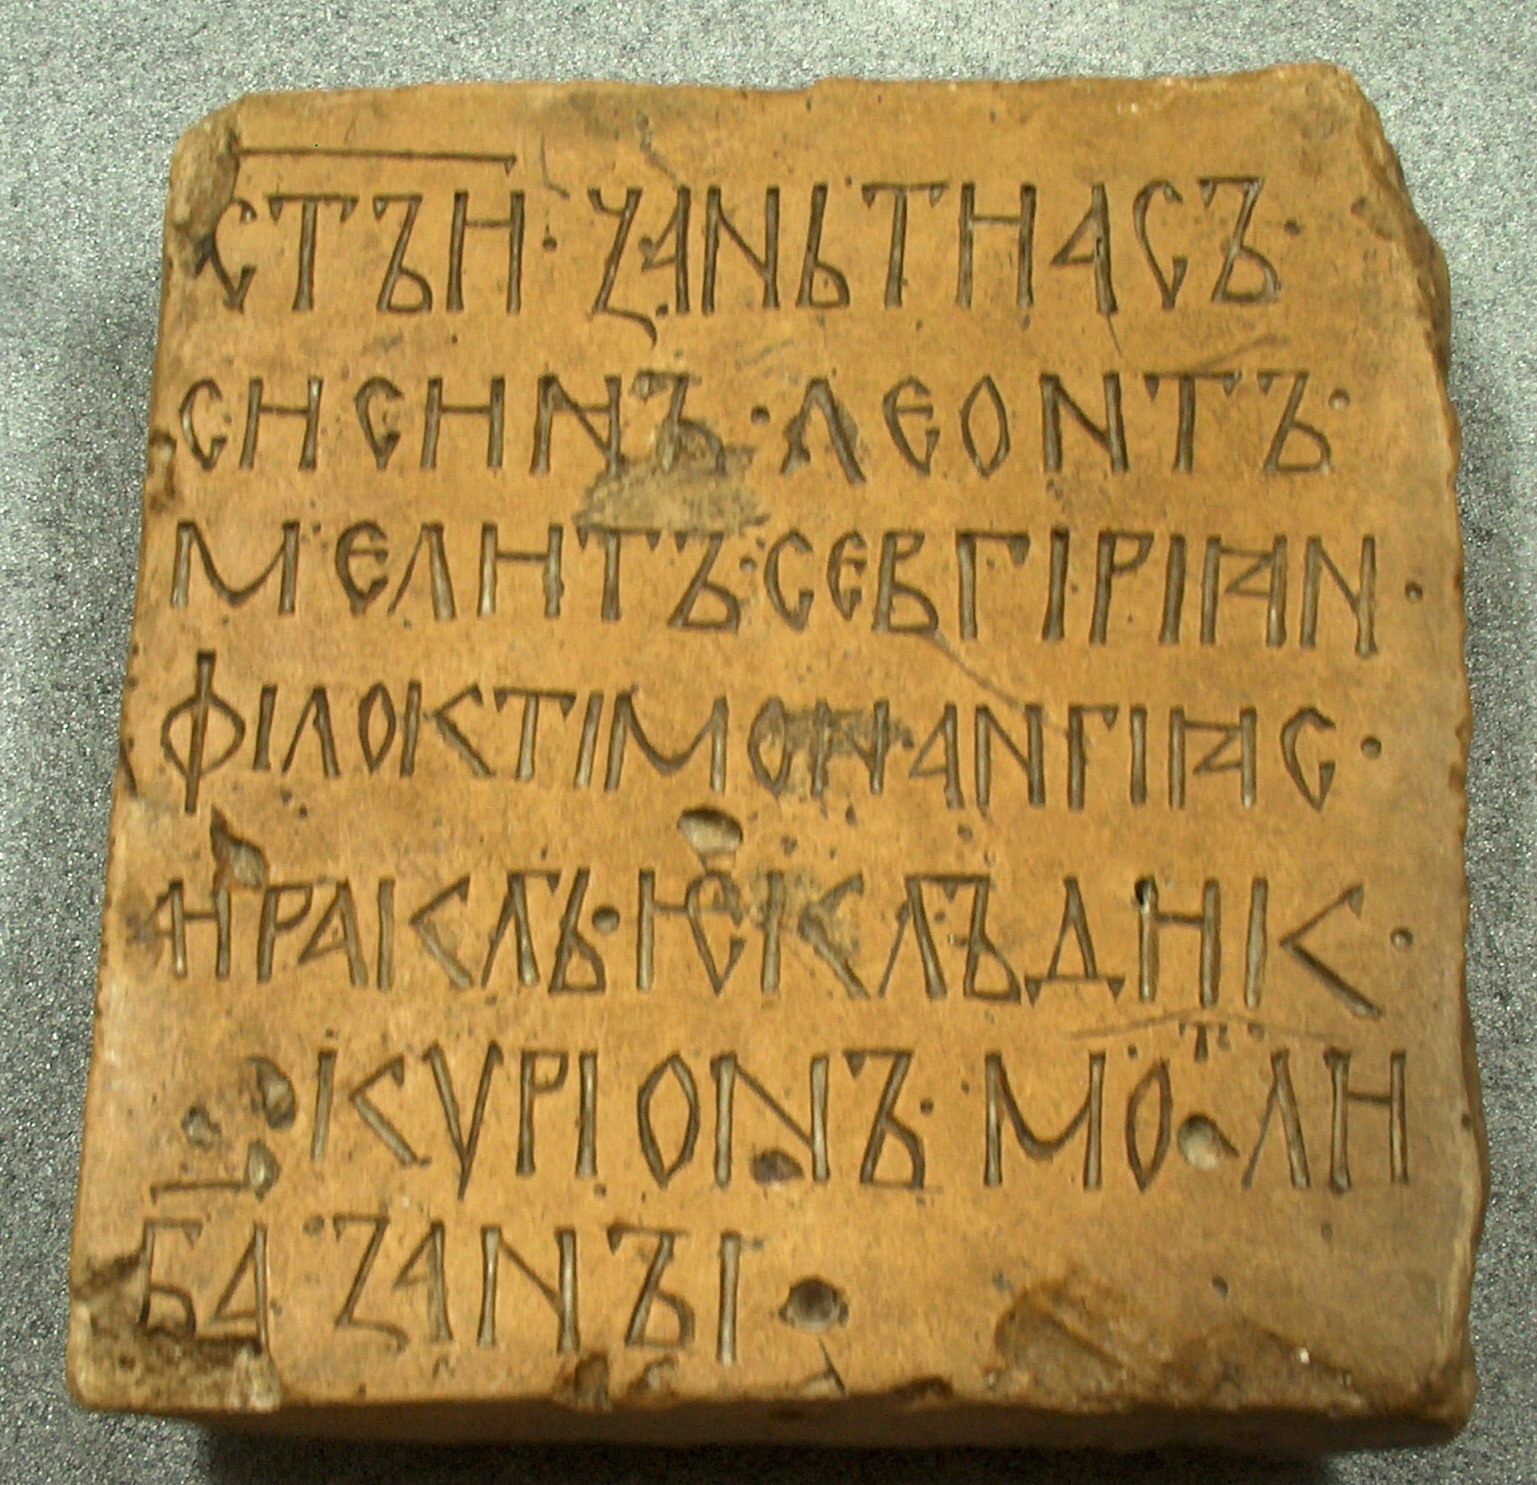 СТЪИ · ѮАНЬТИАСЪ ·
СИСИНЪ · ЛЕОНТЪ ·
МЕЛИТЪ · СЕВГІРІꙖН ·
ФІЛОІКТІМОН АНГІꙖС ·
ИРАІКЛЪ · ИЄІКЛЪДИІК ·
ІКѴРІОНЪ · МОⷮЛИ
БА ЗАНЪІ ·